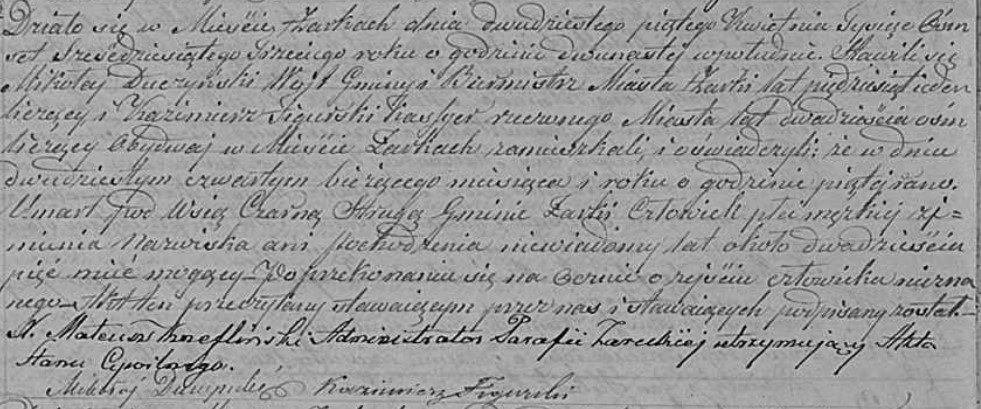 Działo się w Mieście Żarkach dnia dwudziestego piątego Kwietnia Tysiąc Ośm
set Sześćdziesiątego Trzeciego roku o godzinie dwunastej w południe. Stawili się
Mikołaj Duczyński Wójt Gminy i Burmistrz Miasta Żarki lat pięćdziesiąt ieden
liczący i Kazimierz Figurski Kassyer rzeczonego Miasta lat dwadzieścia ośm
liczący Obydwaj w Mieście Żarkach zamieszkali, i oświadczyli: że w dniu
dwudziestym czwartym bieżącego miesiąca i roku o godzinie piątej rano.
Umarł pod Wsią Czarną Strugą Gminie Żarki Człowiek płci męzkiej z i=
mienia Nazwiska ani pochodzenia niewiadomy lat około dwadzieścia
pięć mieć mogący — Po przekonaniu się na ocznie o zejściu człowieka niezna
nego — Akt ten przeczytany stawaiącym przez nas i stawaiących podpisany został. —
X. Mateusz Administrator Parafii Żareckiej utrzymujący Akta
Stanu Cywilnego.
Mikołaj Kazimierz Figurski